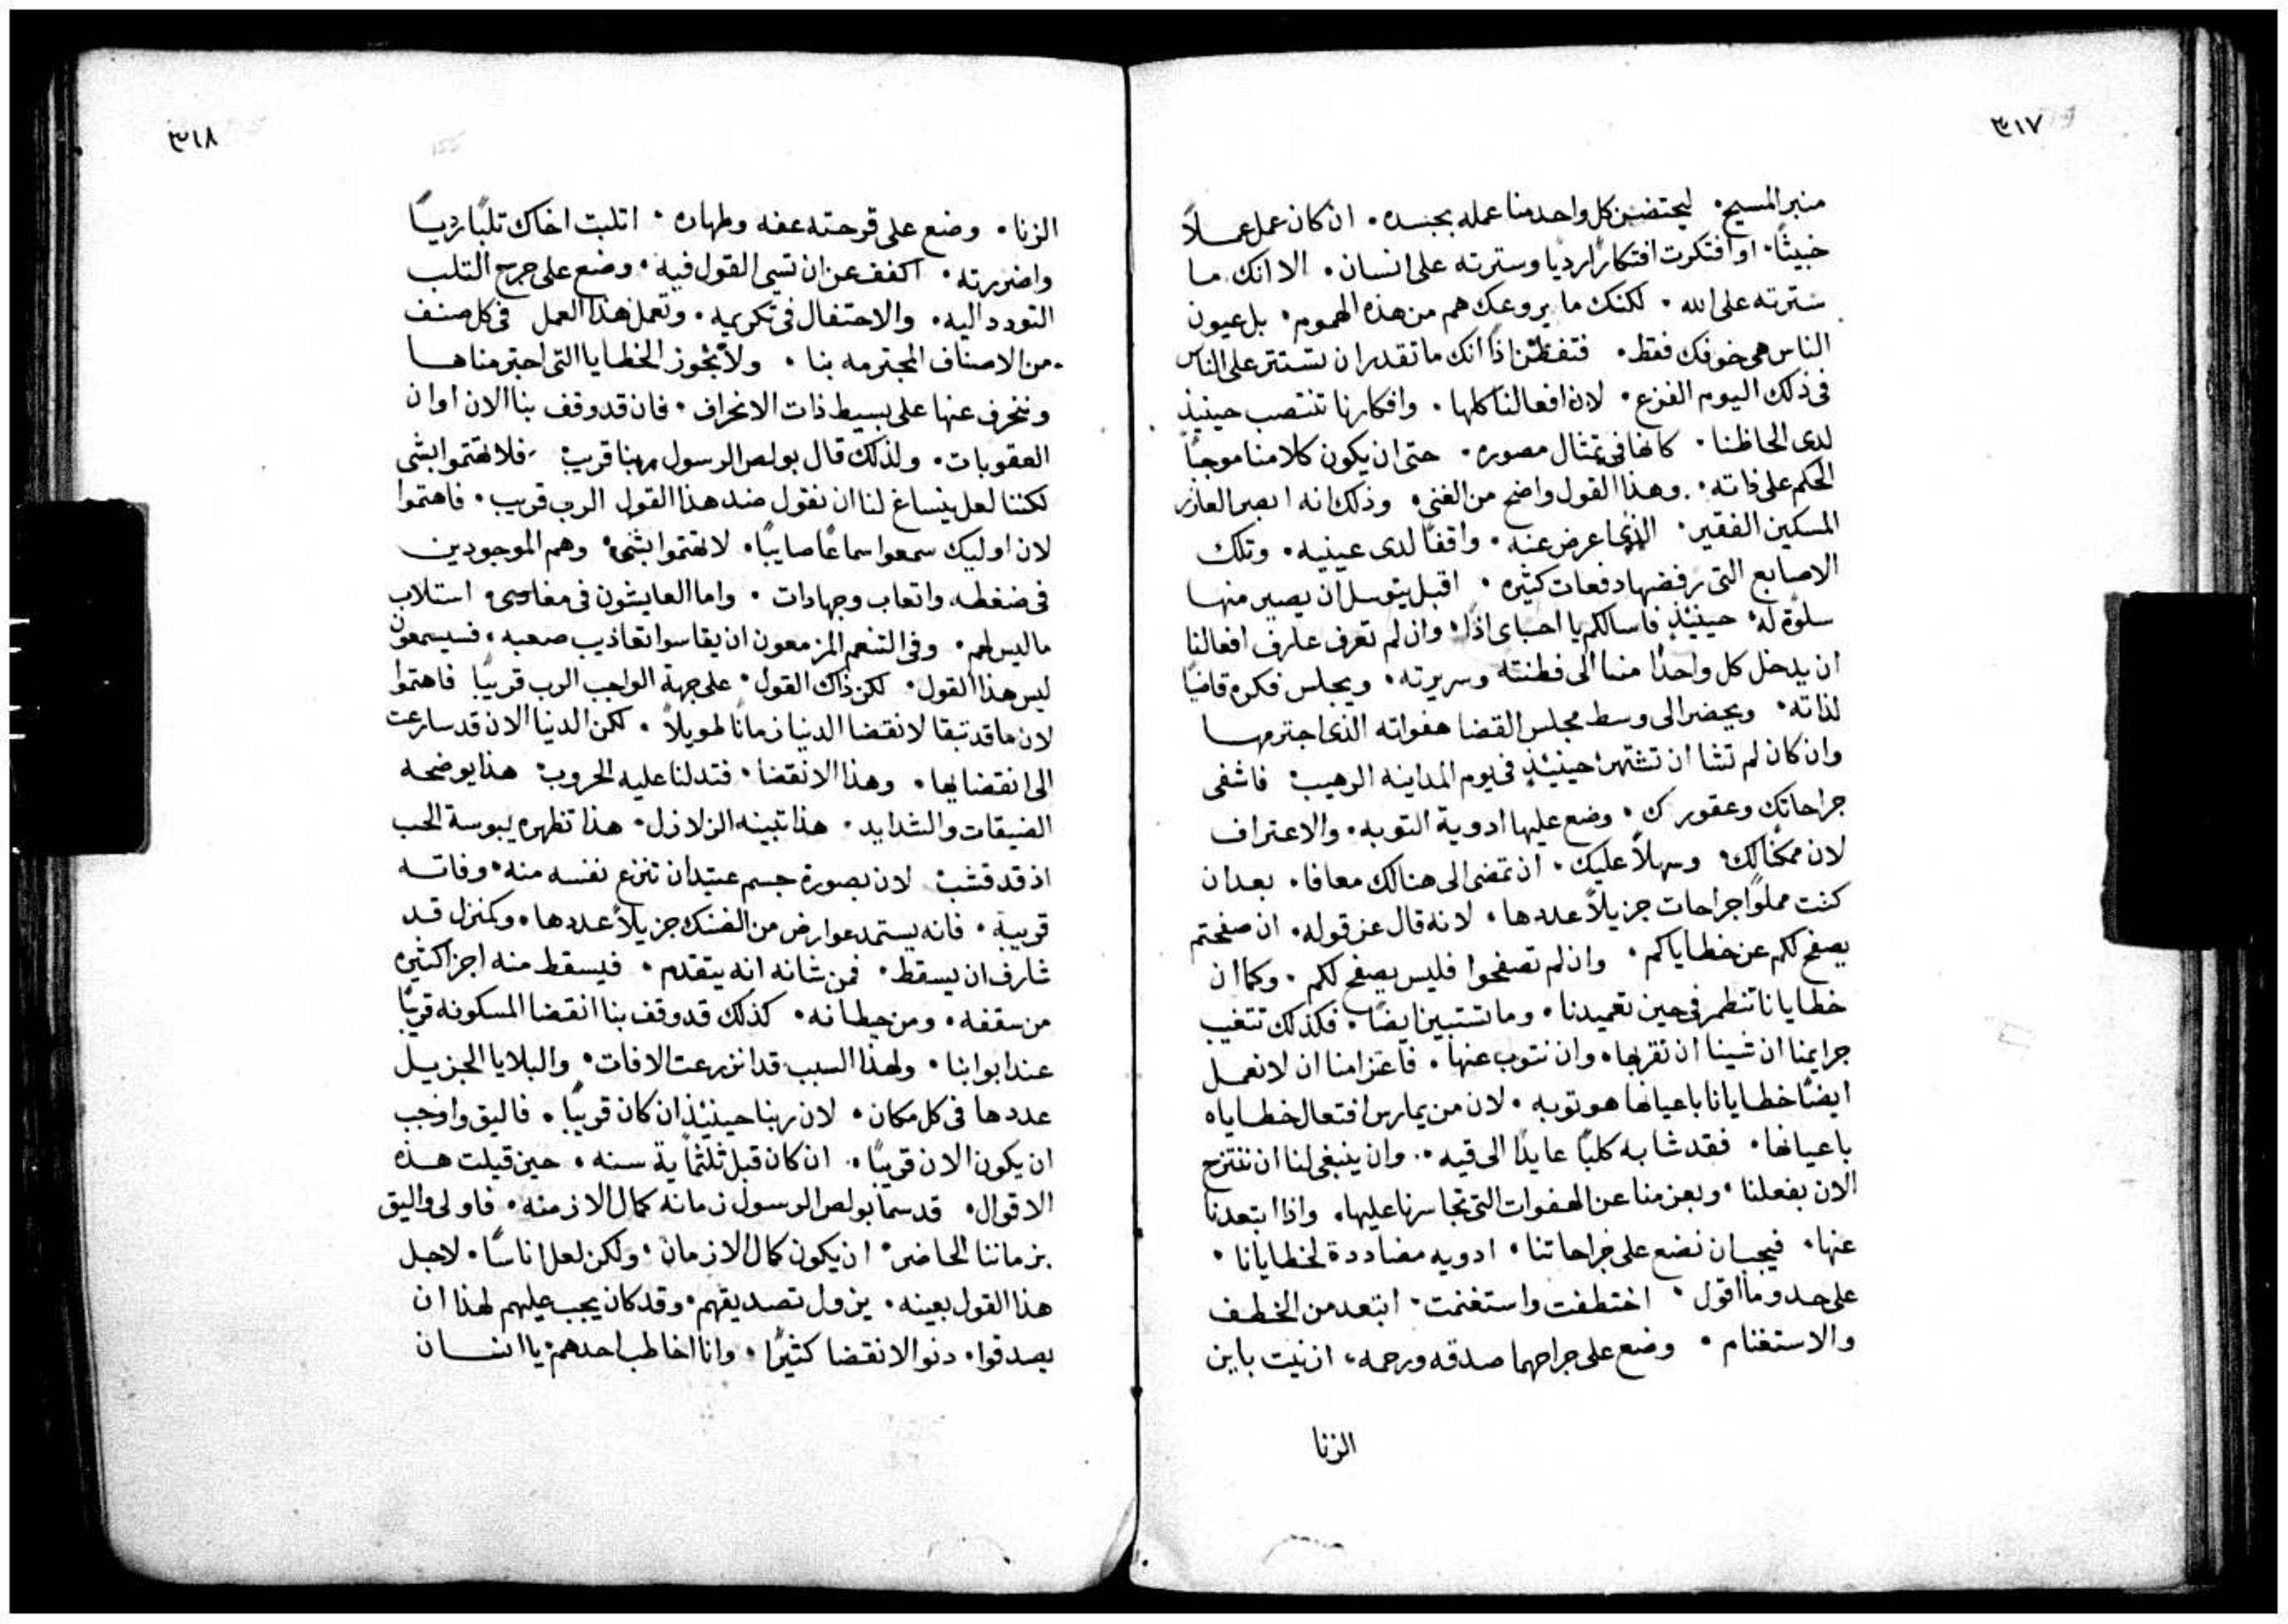 ٣١٧
منبر المسيح۰ ليحتضن كل واحد منا عمله بجسده۰ ان كان عمل عملاً
خبيثًا۰ او افتكرت افتكارًا رديًا وسترته على انسان۰ الا انك ما
سترته على الله۰ لكنك ما يروعك هم من هذه الهموم۰ بل عيون
الناس هى خوفك فقط۰ فتفطن اذًا انك ما تقدر ان تستتر على الناس
فى ذلك اليوم الفزع۰ لان افعالنا كلها۰ وافكارنا تنتصب حينيذ
لدى الحاظنا۰ كانها فى تمثال مصوره۰ حتى ان يكون كلامنا موجبًا
الحكم على ذاته۰ وهذا القول واضح من الغني۰ وذلك انه ابصر العازر
المسكين الفقير۰ الذى اعرض عنه۰ واقفًا لدى عينيه۰ وتلك
الاصابع التى رفضها دفعات كثيره۰ اقبل يتوسل ان يصير منها
سلوة له۰ حينيذٍ فاسالكم يا احباى اذًا۰ وان لم تعرف عارف افعالنا
ان يدخل كل واحدًا منا الى فطنته وسريرته۰ ويجلس فكره قاضيًا
لذاته۰ ويحضر الى وسط مجلس القضا هفواته الذى اجترمها
وان كان لم تشا ان تشتهر حينيذٍ فى يوم المداينه الرهيب۰ فاشفى
جراحاتك وعقورك۰ وضع عليها ادوية التوبه۰ والاعتراف
لان ممكنًا لك۰ وسهلاً عليك۰ ان تمضى الى هنالك معافا۰ بعد ان
كنت مملوًا جراحات جزيلاً عددها۰ لانه قال عز قوله۰ ان صفحتم
يصفح لكم عن خطاياكم۰ وان لم تصفحوا فليس يصفح لكم۰ وكما ان
خطايانا تنطمر فى حين تعميدنا۰ وما تستبين ايضًا۰ فكذلك تتغيب
جرايمنا ان شينا ان نقر بها۰ وان نتوب عنها۰ فاعتزامنا ان لا نعمل
ايضًا خطايانا باعيانها هو توبه۰ لان من يمارس افتعال خطاياه
باعيانها۰ فقد شابه كلبًا عايدًا الى قيه۰ وان ينبغى لنا ان ننتزح
الان بفعلنا۰ وبعزمنا عن الهفوات التى تجاسرنا عليها۰ واذا ابتعدنا
عنها۰ فيجب ان نضع على جراحاتنا۰ ادويه مضاددة لخطايانا۰
على حد وما اقول۰ اختطفت واستغنمت۰ ابتعد من الخطف
والاستغنام۰ وضع على جراحهما صدقه ورحمه۰ ازنيت باين
الزنا
٣١٨
الزنا۰ وضع على قرحته عفه وطهاره۰ اتلبت اخاك تلبًا رديًا
واضررته۰ اكفف عن ان تسي القول فيه۰ وضع على جرح التلب
التودد اليه۰ والاحتفال فى تكريمه۰ وتعمل هذا العمل فى كل صنف
من الاصناف المجترمه بنا۰ ولا نجوز الخطايا التى اجترمناها
وننحرف عنها على بسيط ذات الانحراف۰ فان قد وقف بنا الان اوان
العقوبات۰ ولذلك قال بولص الرسول ربنا قريب۰ فلا تهتموا بشى
لكننا لعل ينساغ لنا ان نقول ضد هذا القول الرب قريب۰ فاهتموا
لان اوليك سمعوا سماعًا صايبًا۰ لا تهتموا بشى۰ وهم الموجودين
فى ضغطه واتعاب وجهادات۰ واما العايشون فى استلاب
ما ليس لهم۰ وفى التنعم المزمعون ان يقاسوا تعاذيب صعبه۰ فسيسمعون
ليس هذا القول۰ لكن ذاك القول۰ على جهة الواجب الرب قريبًا فاهتموا
لان ما قد تبقا لانقضا الدنيا زمانًا طويلاً۰ لكن الدنيا الان قد سارعت
الى انقضايها۰ وهذا الانقضا۰ فتدلنا عليه الحروب۰ هذا يوضحه
الضيقات والشدايد۰ هذا تبينه الزلازل۰ هذا تظهره يبوسة الحب
اذ قد قشب۰ لان بصورة جسم عتيد ان تنزع نفسه منه۰ وفاته
قريبة۰ فانه يستمد عوارض من الضنك جزيلاً عددها۰ وكمنزل قد
شارف ان يسقط۰ فمن شانه انه يتقدم۰ فيسقط منه اجزا كثيره
من سقفه۰ ومن حيطانه۰ كذلك قد وقف بنا انقضا المسكونه قريبًا
عند ابوابنا۰ ولهذا السبب قد انزرعت الافات۰ والبلايا الجزيل
عددها فى كل مكان۰ لان ربنا حينيذٍ ان كان قريبًا۰ فاليق واوجب
ان يكون الان قريبًا۰ ان كان قبل ثلثماية سنه۰ حين قيلت هذه
الاقوال۰ قد سما بولص الرسول زمانه كمال الازمنه۰ فاولى واليق
بزماننا الحاضر۰ ان يكون كمال الازمان۰ ولكن لعل اناسًا۰ لاجل
هذا القول بعينه۰ يزول تصديقهم۰ وقد كان يجب عليهم لهذا ان
يصدقوا۰ دنو الانقضا كثيرًا۰ وانا اخاطب احدهم يا انسان